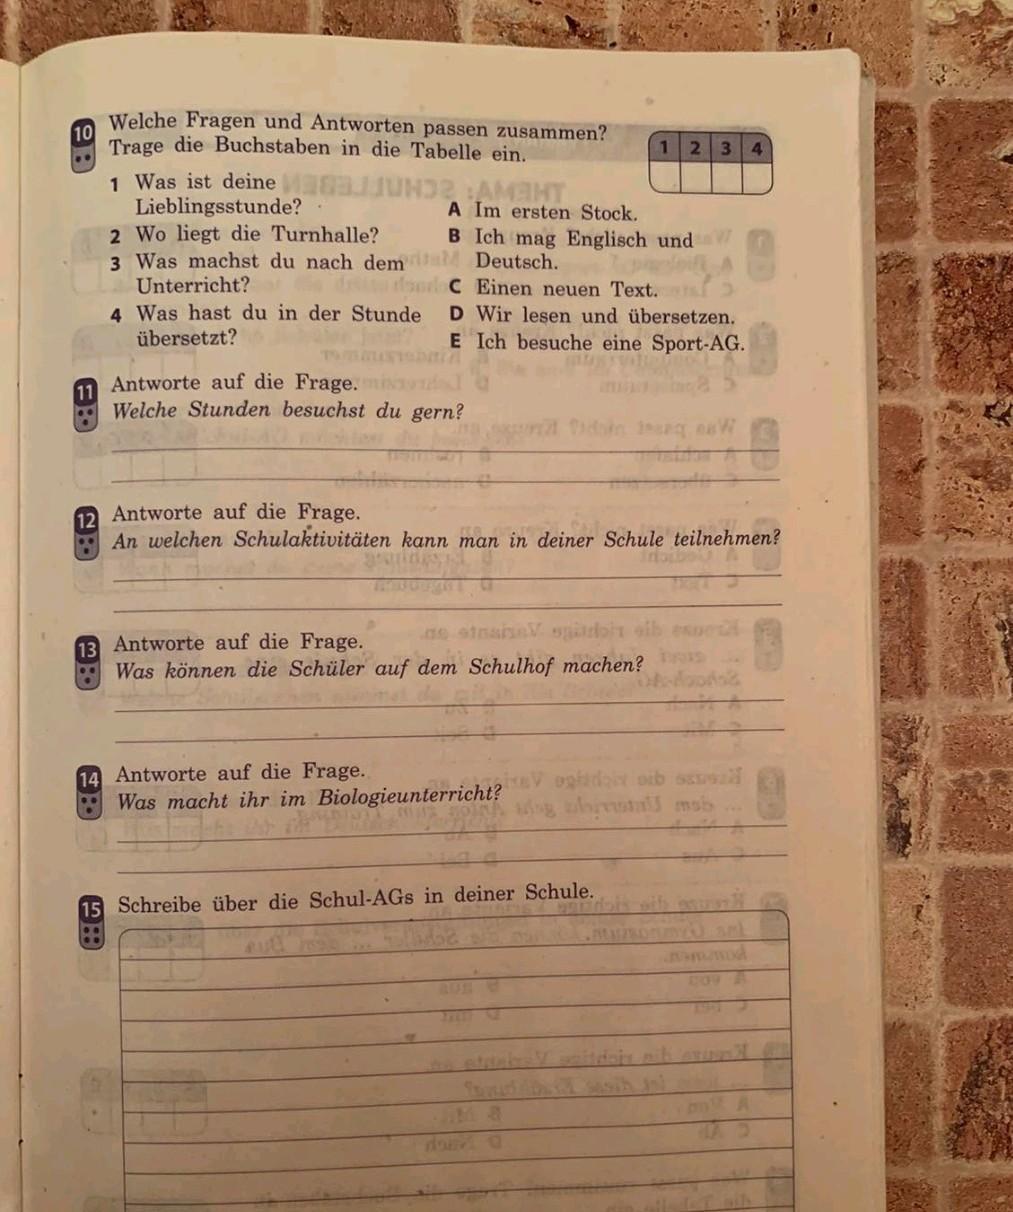 10 Welche Fragen und Antworten passen zusammen?
Trage die Buchstaben in die Tabelle ein.
1 2 3 4
1 Was ist deine
Lieblingsstunde?
2 Wo liegt die Turnhalle?
3 Was machst du nach dem
Unterricht?
4 Was hast du in der Stunde
übersetzt?
A Im ersten Stock.
B Ich mag Englisch und
Deutsch.
C Einen neuen Text.
D Wir lesen und übersetzen.
E Ich besuche eine Sport-AG.
11 Antworte auf die Frage.
Welche Stunden besuchst du gern?
12 Antworte auf die Frage.
An welchen Schulaktivitäten kann man in deiner Schule teilnehmen?
13 Antworte auf die Frage.
Was können die Schüler auf dem Schulhof machen?
14 Antworte auf die Frage.
Was macht ihr im Biologieunterricht?
15 Schreibe über die Schul-AGs in deiner Schule.